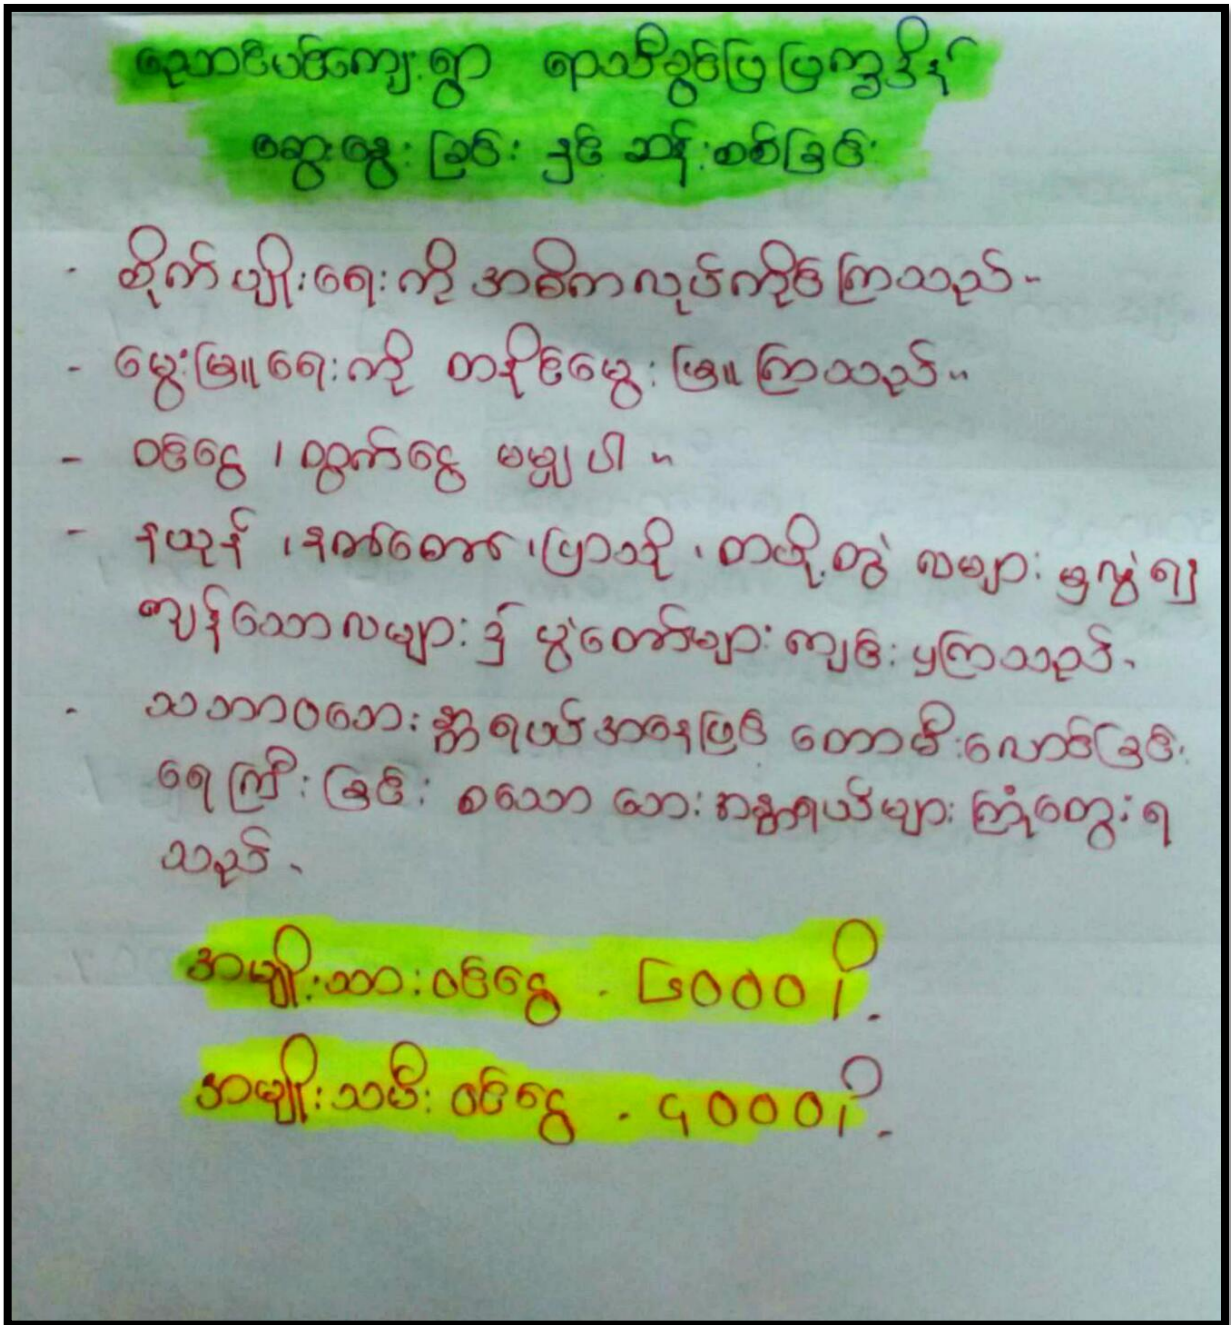 ညောင်ပင်ကျေးရွာ ရာသီခွင်ပြ ပြက္ခဒိန်
ဆွေးနွေးခြင်း နှင့် ဆန်းစစ်ခြင်း
- စိုက်ပျိုးရေးကို အဓိကလုပ်ကိုင်ကြသည်။
- မွေးမြူရေးကို တနိုင်မွေးမြူကြသည်။
- ဝင်ငွေ ၊ ထွက်ငွေ မမျှပါ။
- နယုန် ၊ နတ်တော် ၊ ပြာသို ၊ တပို့တွဲ လများ မှလွဲ၍
ကျန်သောလများ၌ ပွဲတော်များ ကျင်းပကြသည်။
- သဘာဝဘေးန္တရာယ်အနေဖြင့် တောမီးလောင်ခြင်း
ရေကြီးခြင်း စသော ဘေးအန္တရာယ်များ ကြုံတွေ့ရ
သည်။
အမျိုးသားဝင်ငွေ - ၆၀၀၀ိ/-
အမျိုးသမီးဝင်ငွေ - ၄၀၀၀ိ/-